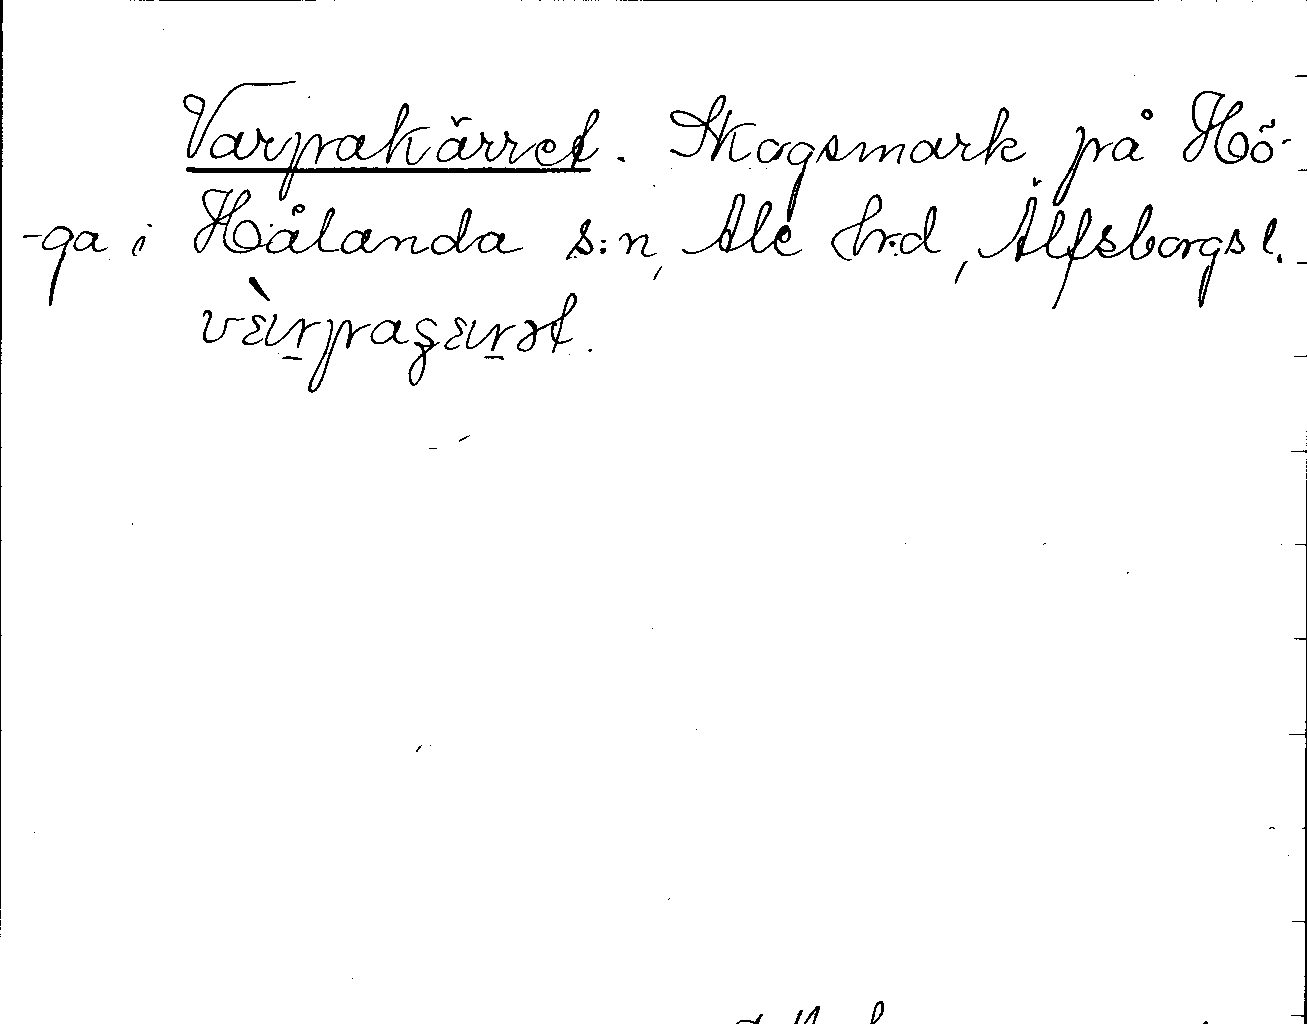 Varpakärret. Skogsmark på Hö-
-ga i Hålanda s:n, Ale hrd, Älfsborgs l.
vὲɩr̠paʂɛɩr̠ət.